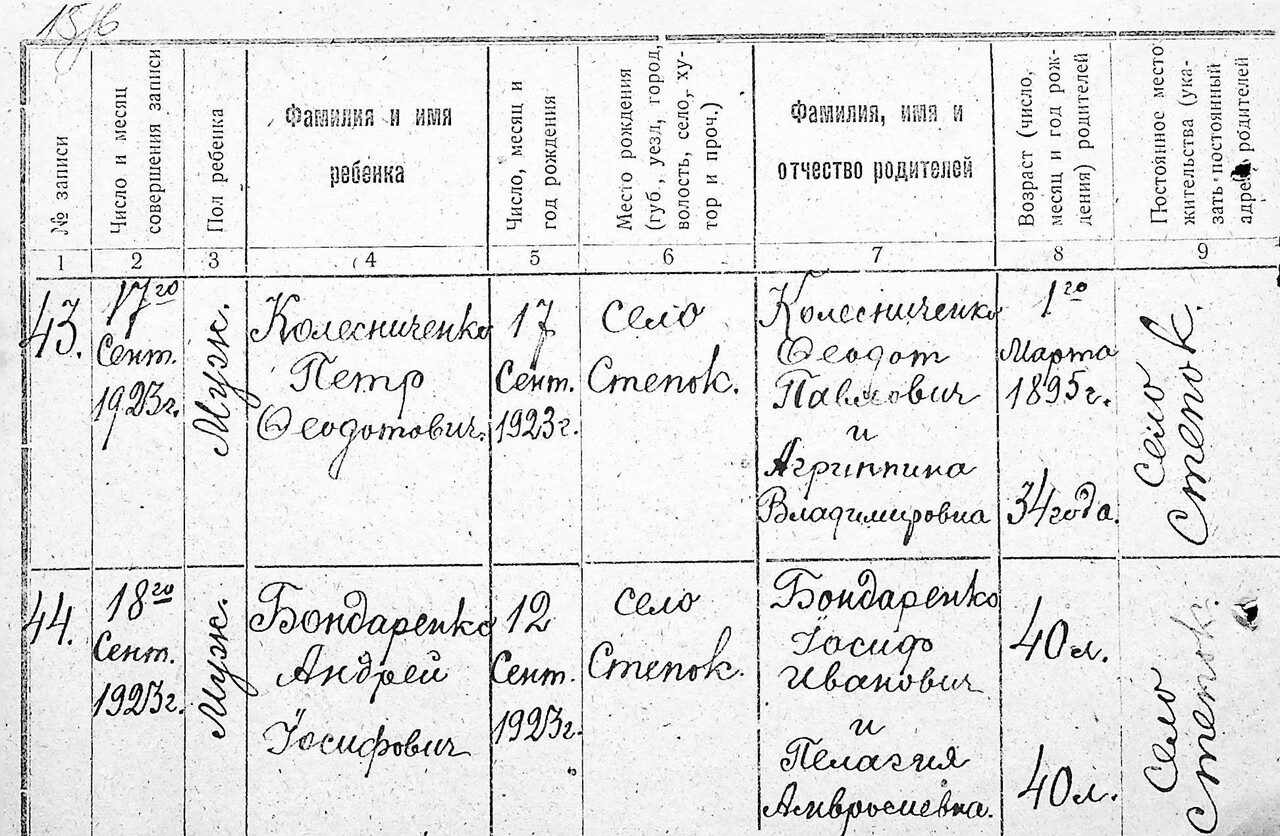 15/6
№ записи
Число и месяц
совершения записи
Пол ребенка
Фамилия и имя
ребенка
Число, месяц и
год рождения
Место рождения
(губ., уезд, город,
волость, село, ху-
тор и проч.)
Фамилия, имя и
отчество родителей
Возраст (число,
месяц и год рож-
дения) родителей
Постоянное место
жительства (ука-
зать постоянный
адрес родителей
1
2
3
4
5
6
7
8
9
43.
17го
Сент.
1923г.
Муж.
Колесниченко
Петр
Ѳеодотович.
17
Сент.
1923г.
село
Степок.
Колесниченко
Ѳеодот
Павлович
и
Агриппина
Владимировна
1го
Марта
1895г.
34 года.
село
Степок.
44.
18го
Сент.
1923г.
Муж.
Бондаренко
Андрей
Їосифович
12
Сент.
1923г.
село
Степок.
Бондаренко
Їосиф
Иванович
и
Пелагия
Амвросиевна.
40л.
40л.
село
Степок.